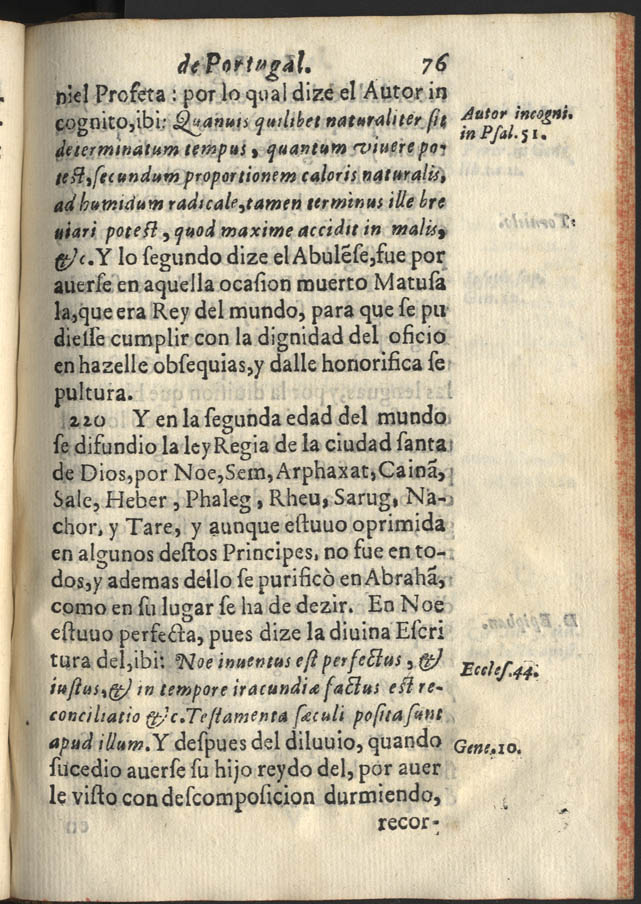 de Portugal. 76
niel Profeta : por lo qual dize el Autor in
cognito, ibi: Quanuis quilibet naturaliter sit
determinatum tempus, quantum viuere po-
test, secundum proportionem caloris naturalis,
ad humidum radicale, tamen terminus ille bre
uiari potest, quod maxime accidit in malis,
&c. Y lo segundo dize el Abulẽse, fue por
auerse en aquella ocasion muerto Matusa
la, que era Rey del mundo, para que se pu
diesse cumplir con la dignidad del oficio
en hazelle obsequias, y dalle honorifica se
pultura.
220 Y en la segunda edad del mundo
se difundio la ley Regia de la ciudad santa
de Dios, por Noe, Sem, Arphaxat, Cainã,
Sale, Heber, Phaleg, Rheu, Sarug, Na-
chor, y Tare, y aunque estuuo oprimida
en algunos destos Principes, no fue en to-
dos, y ademas dello se purificò en Abrahã,
como en su lugar se ha de dezir. En Noe
estuuo perfecta, pues dize la diuina Escri
tura del, ibi: Noe inuentus est perfectus, &
iustus, & in tempore iracundiæ factus est re-
conciliatio &c. Testamenta sæculi posita sunt
apud illum. Y despues del diluuio, quando
sucedio auerse su hijo reydo del, por auer
le visto con descomposicion durmiendo,
recor-
Autor incogni.
in Psal. 51.
Eccles. 44.
Gene. 10.